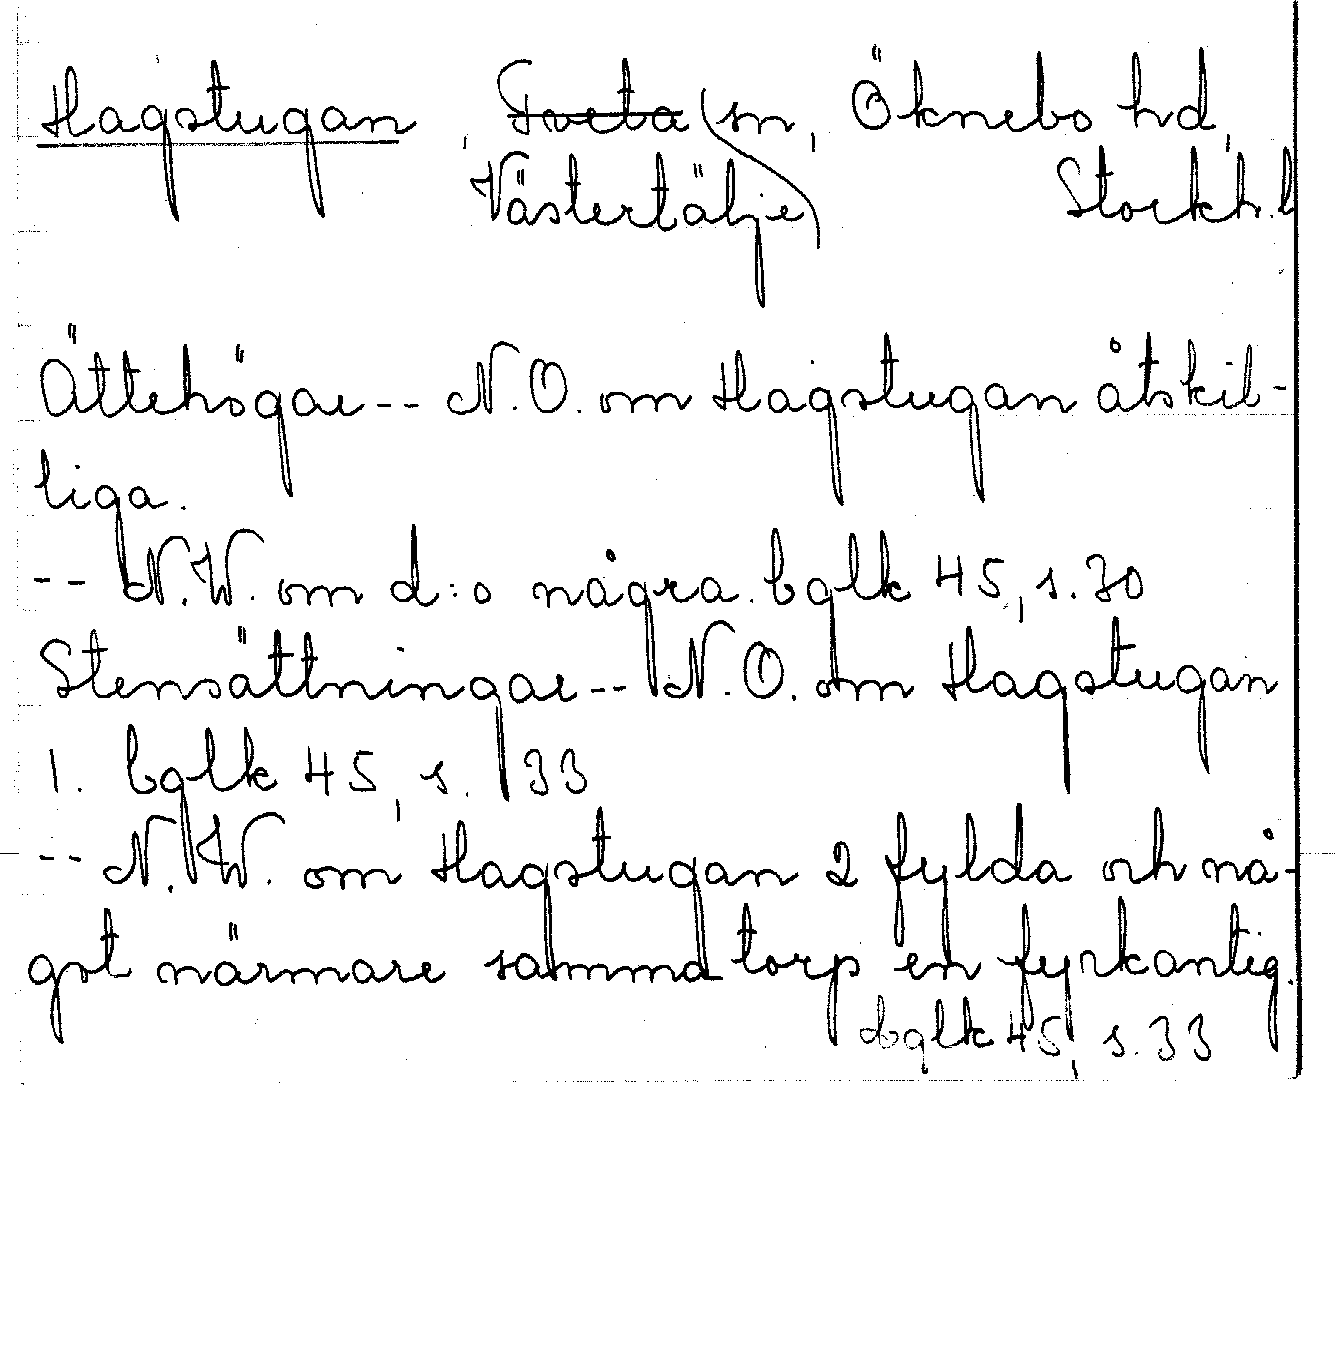 Hagstugan, Tveta sn, Öknebo hd,
Västertälje Stockh. l
Ättehögar-- N.O. om Hagstugan åtskil-
liga.
-- N.W. om d:o några. bglk 45, s. 30
Stensättningar-- N.O. om Hagstugan
1. bglk 45, s. 33
-- N.W. om Hagstugan 2 fylda och nå-
got närmare samma torp en fyrkantig.
bglk 45, s. 33